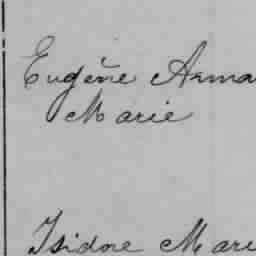 Eugène Arma
Marie
Isidore Mari